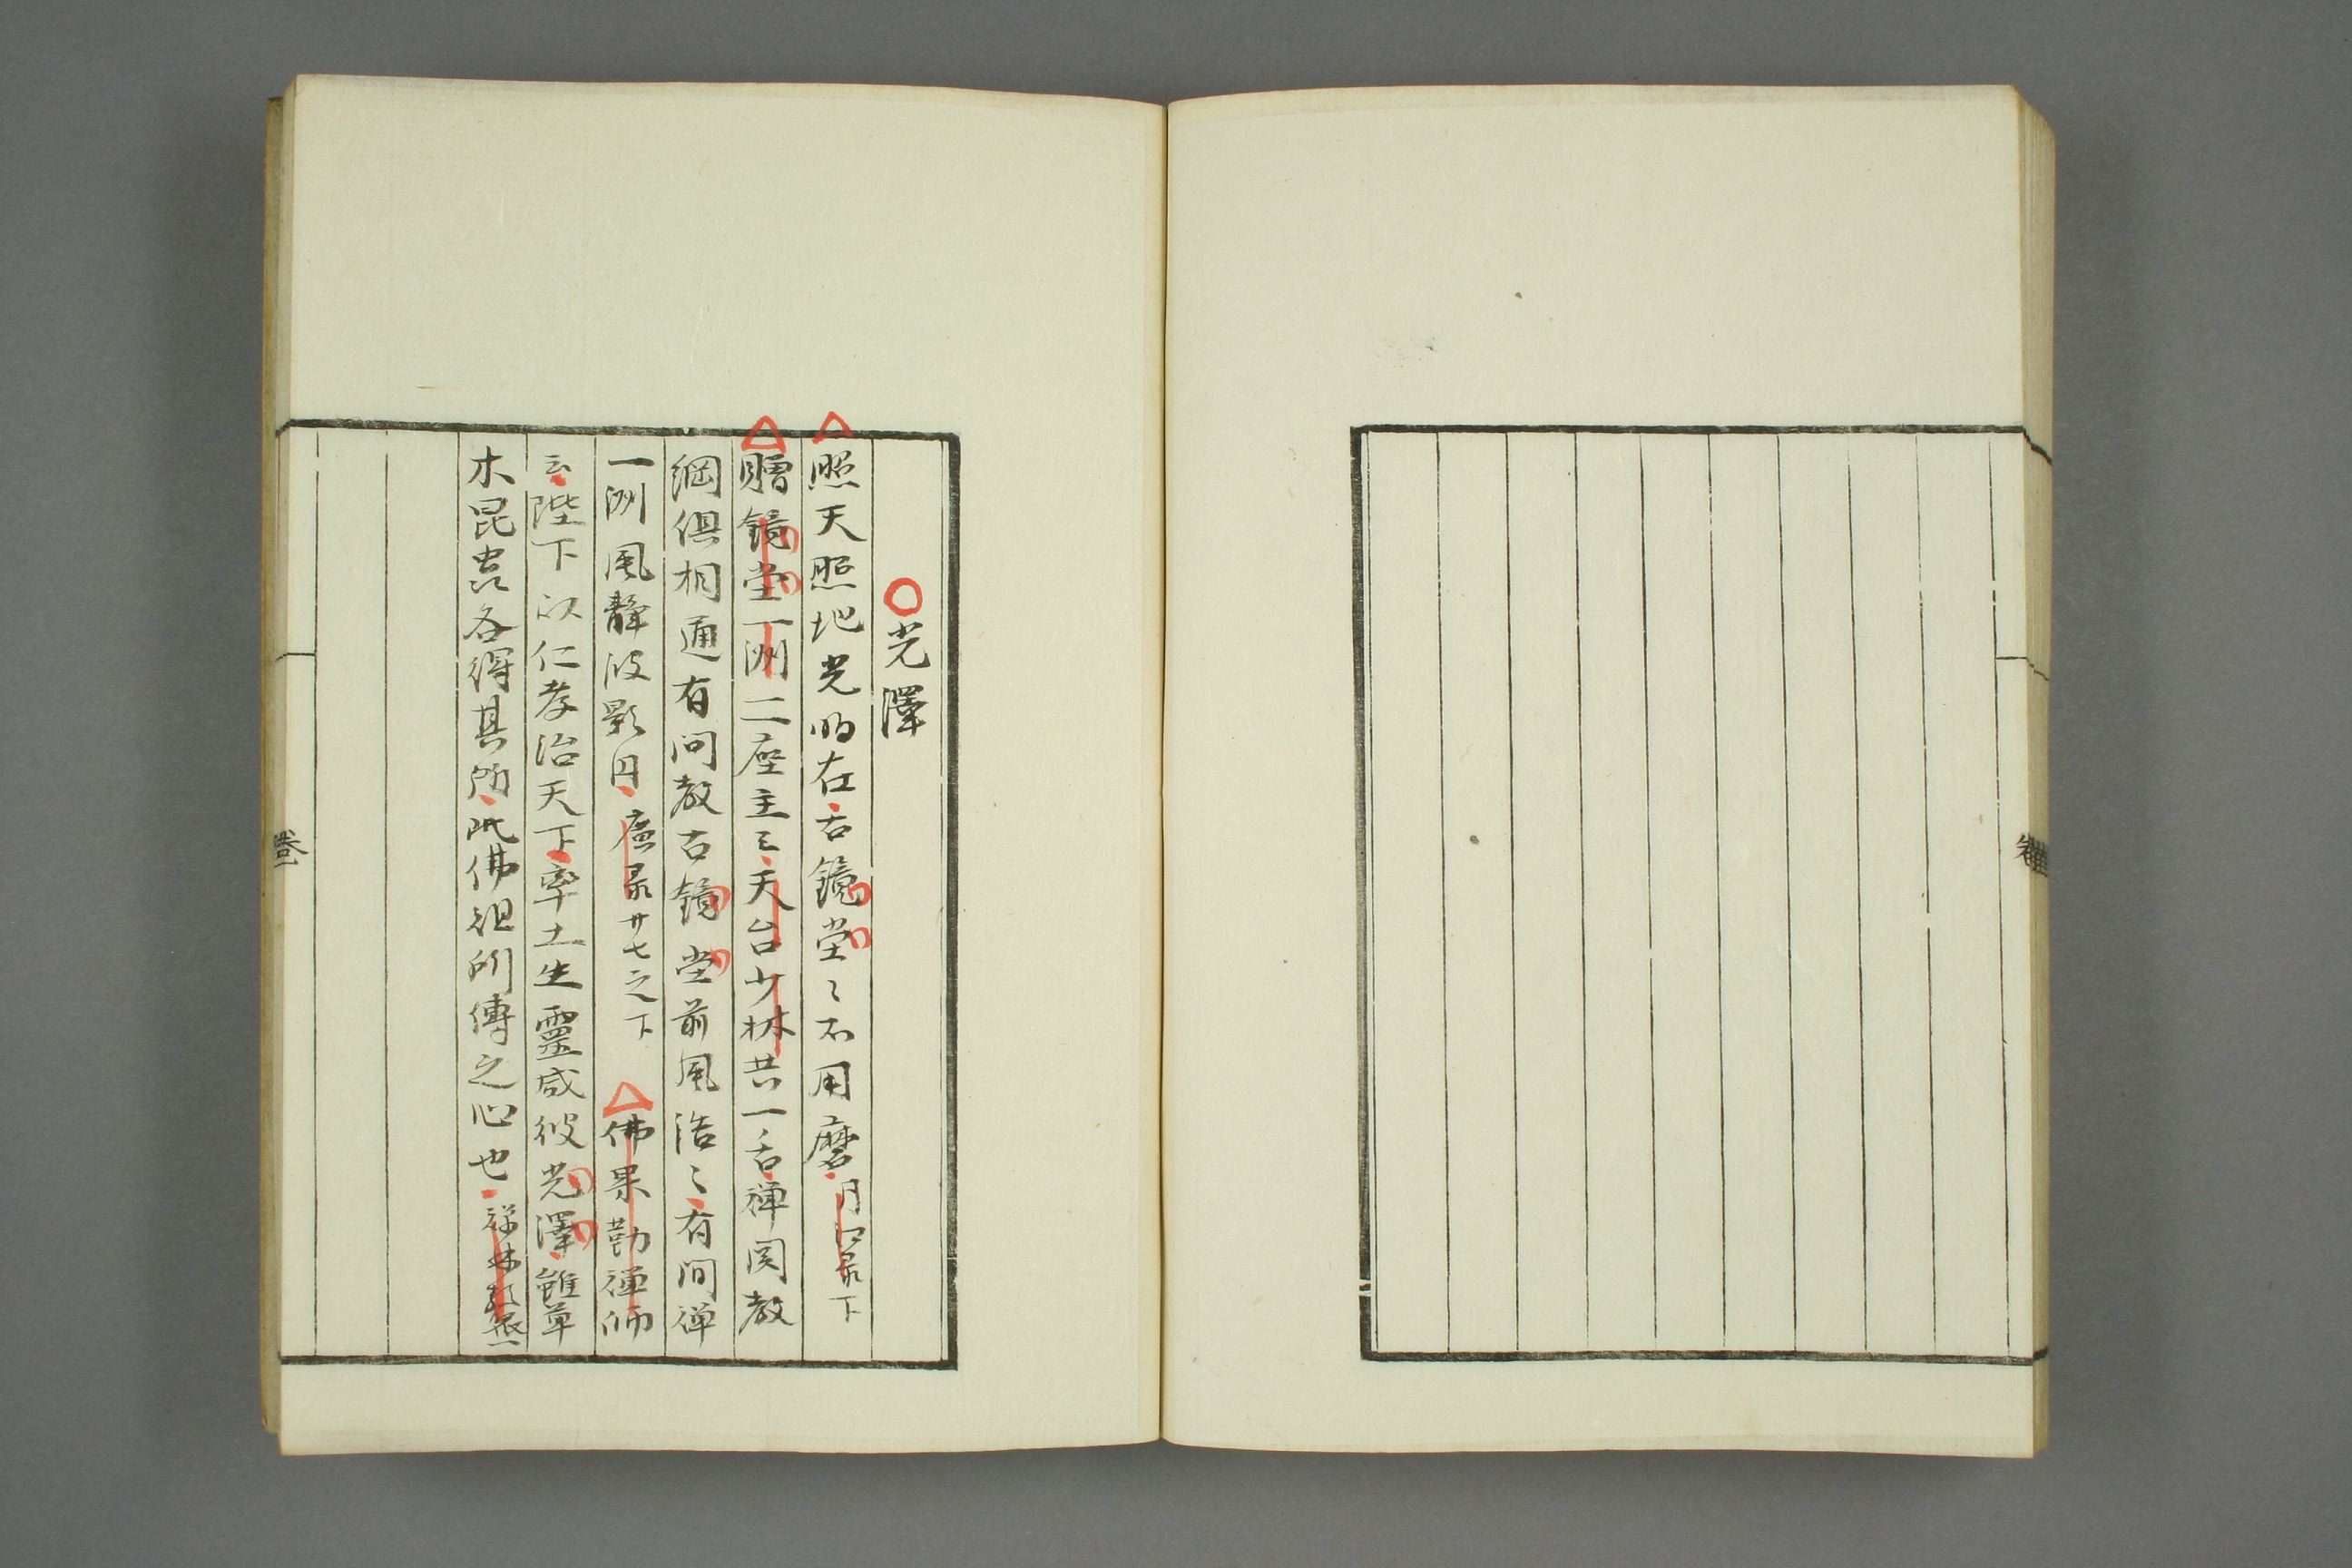 光澤
照天照地光明在古鏡堂〻不用磨月江录下
贈鏡堂一洲二座主〻天台少林共一舌禅関教
綱俱相通有问教古鏡堂前風浩〻有问禅
一洲風静波影円廣录廿七之下 佛果勤禅師
云陛下以仁孝治天下率土生靈咸被光澤雖草
木昆虫各得其所此佛祖所傳之心也禅林類聚一